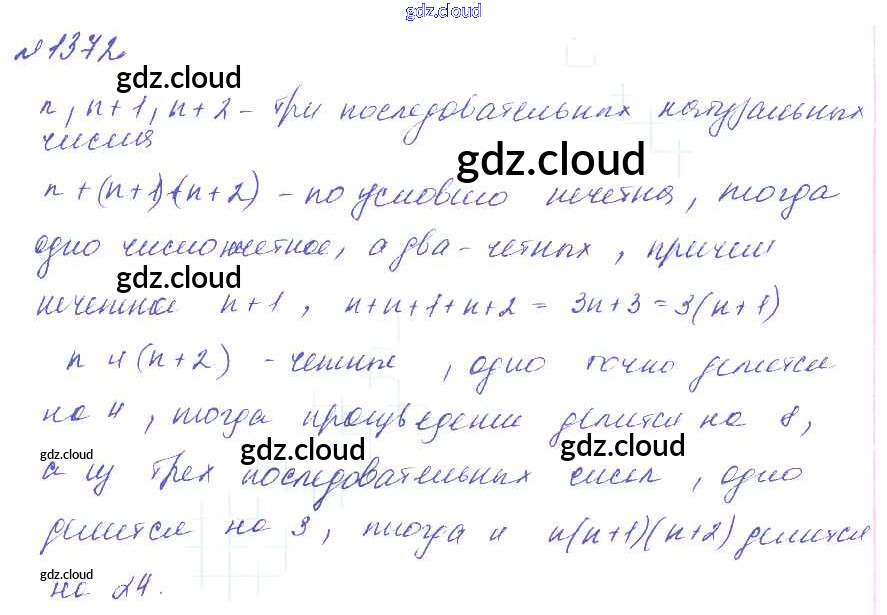 gdz.cloud
№1372
gdz.cloud
n, n+1, n+2 - три последовательных натуральных
числа
gdz.cloud
n+(n+1)+(n+2) - по условию нечетна, тогда
одно число нечетное, а два - четных, причем
gdz.cloud
нечетное n+1, n+n+1+n+2 = 3n+3 = 3(n+1)
n и (n+2) - четные, одно точно делится
на 4, тогда произведение делится на 8,
gdz.cloud gdz.cloud gdz.cloud
а из трех последовательных чисел, одно
делится на 3, тогда и n(n+1)(n+2) делится
gdz.cloud
на 24.